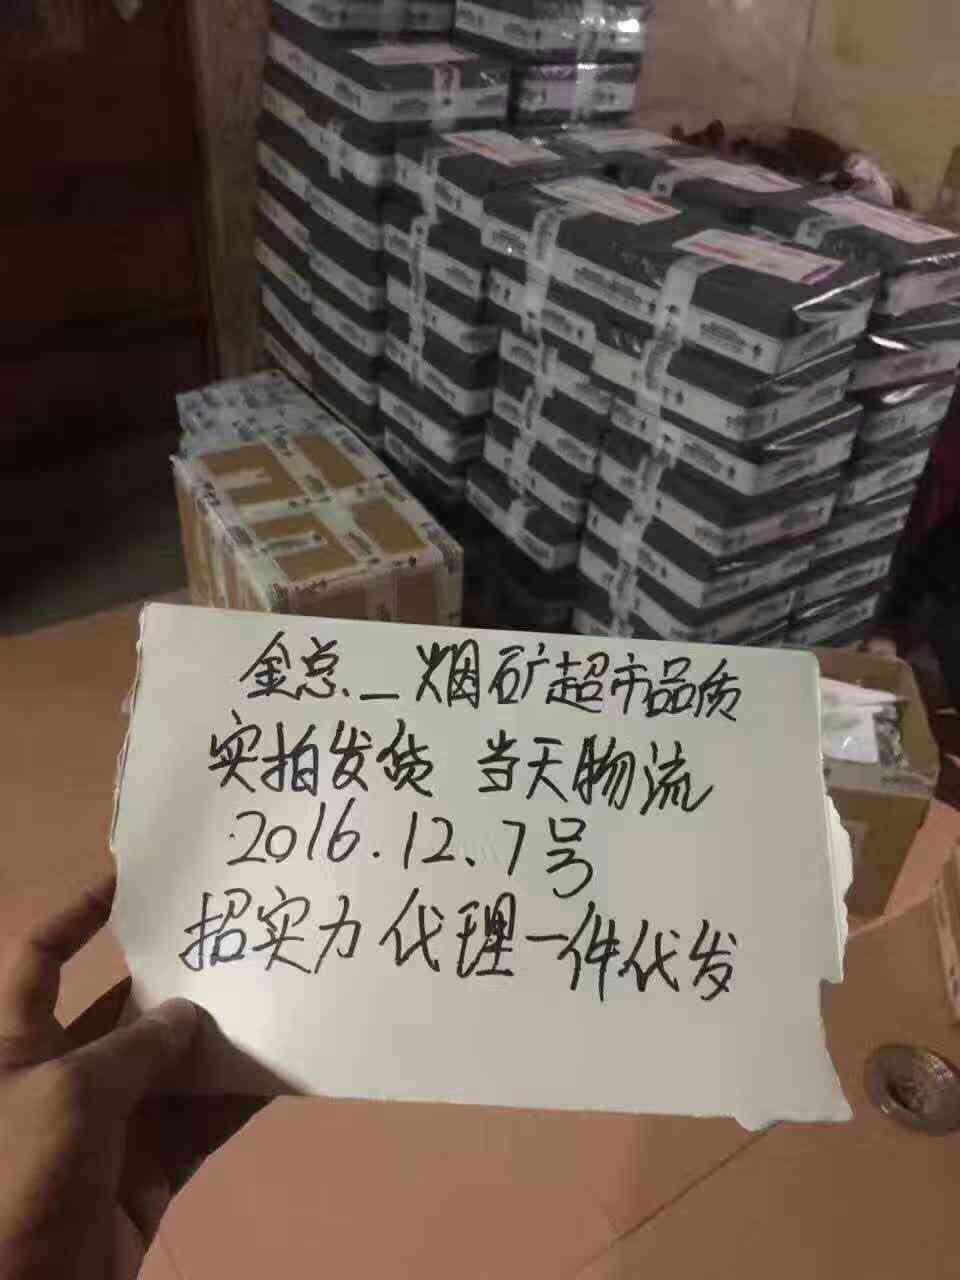 金总_烟矿超市品质
实拍发货 当天物流
2016.12、7号
招实力代理一件代发